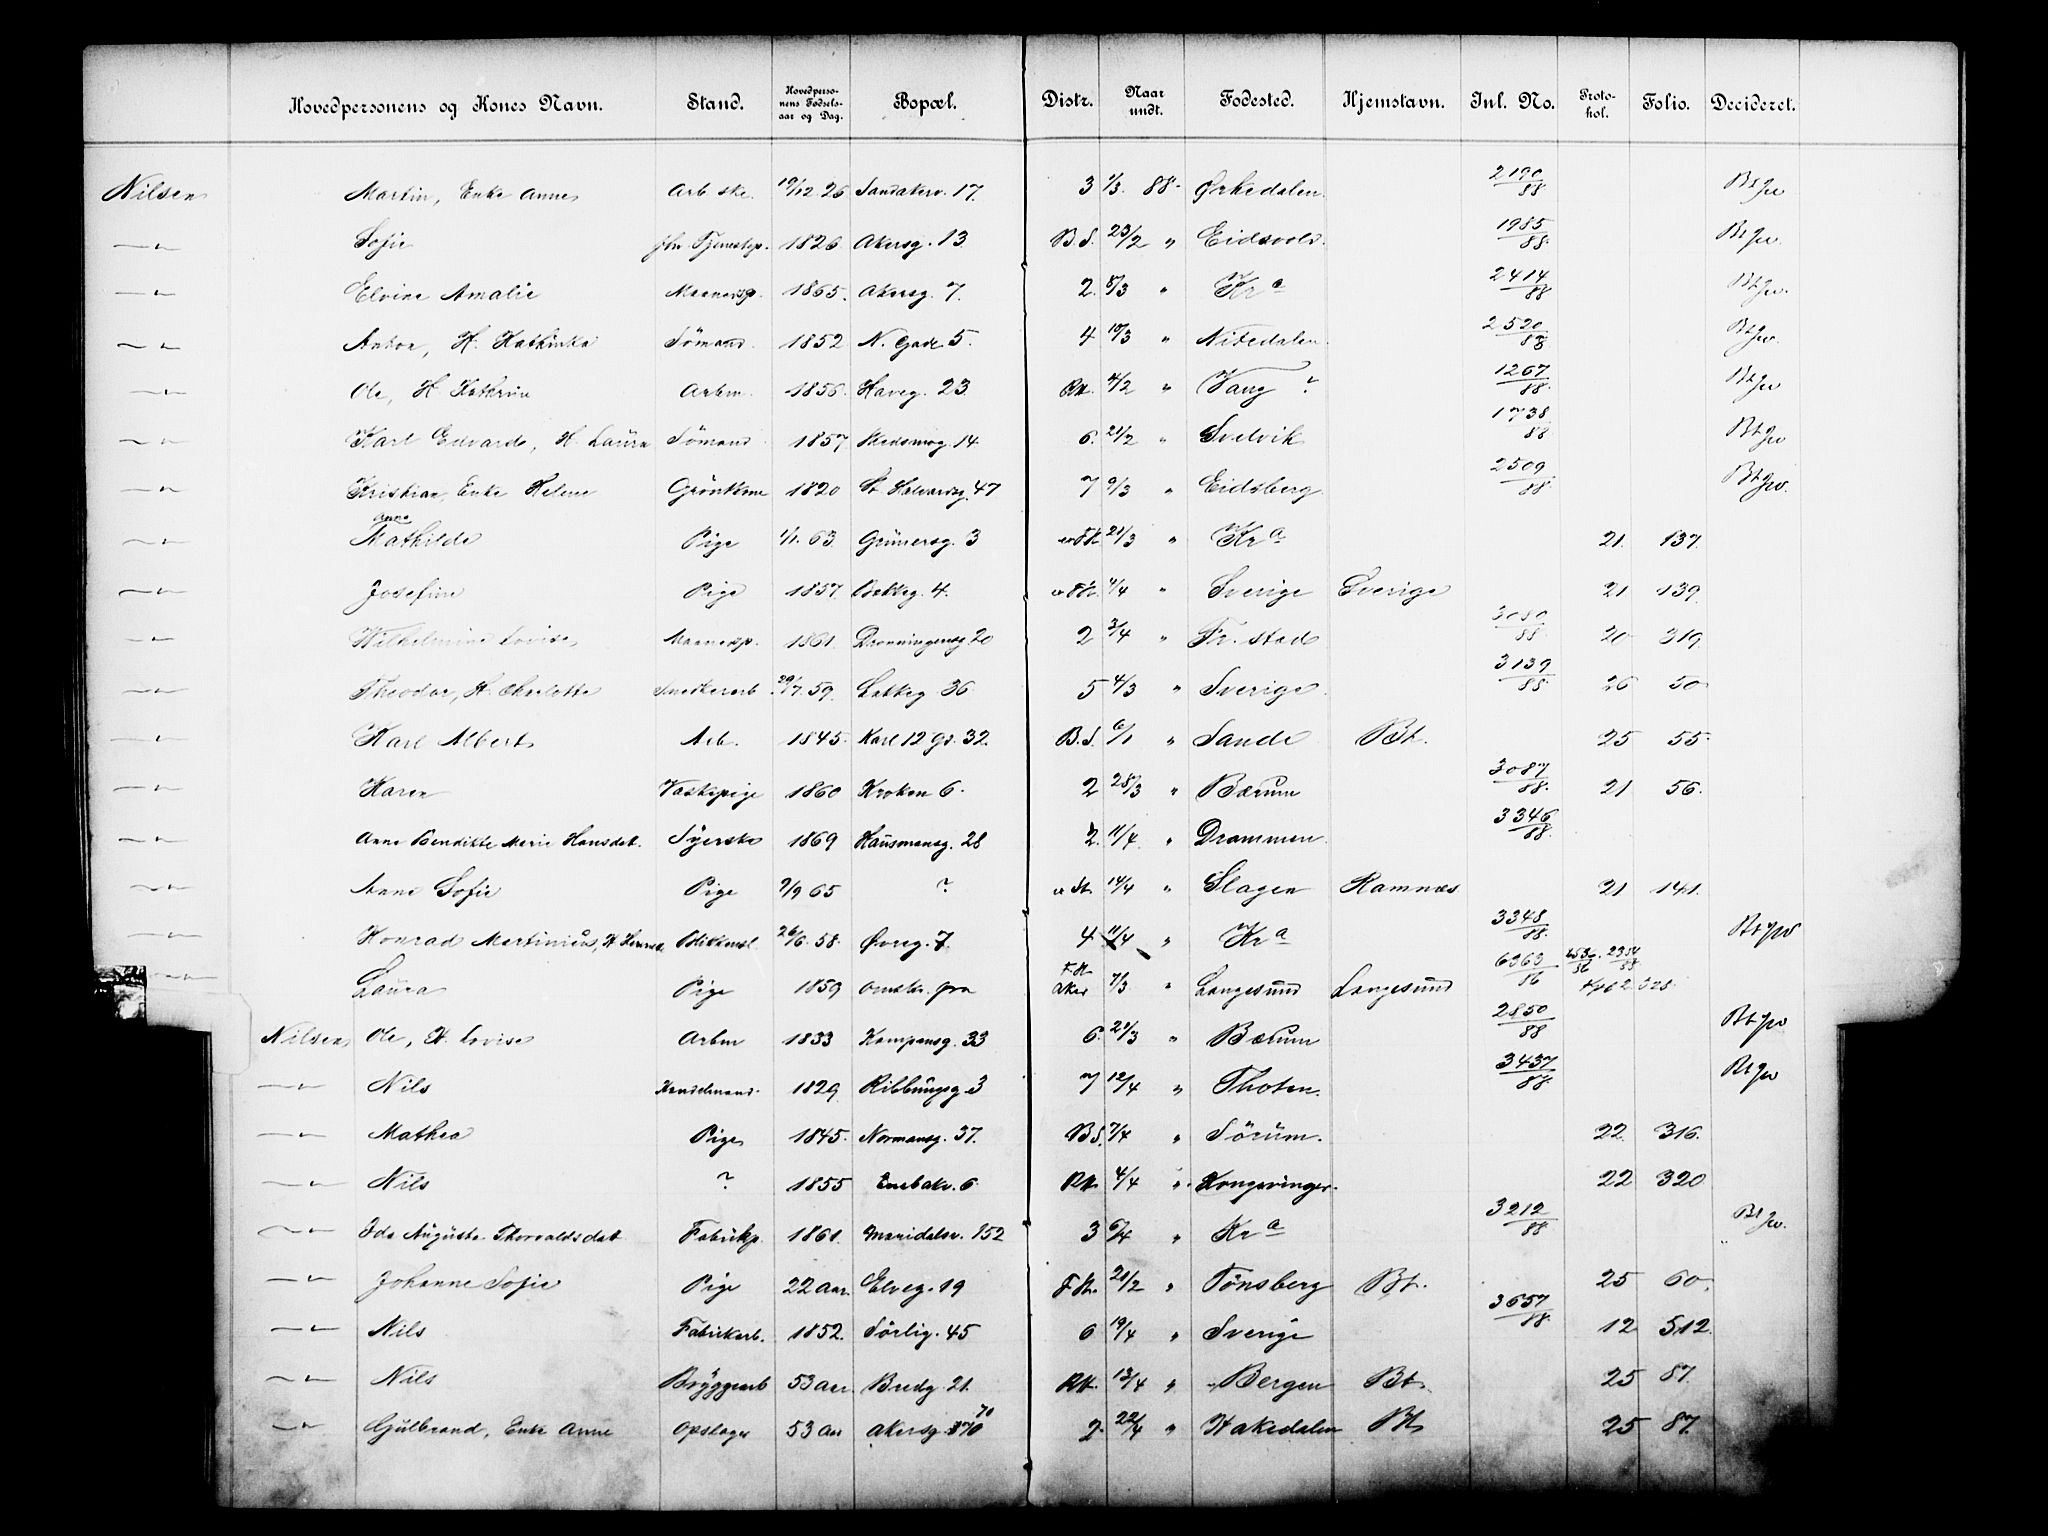 Hovedpersonens og Kones Navn. Stand. Hovedpersonens Fødselsaar og Dag. Bopæl. Distr. Naar undt. Fødested. Hjemstavn. Inl. No. Protokol. Folio. Decideret.
Nilsen Martin, Enke Anne Arb. ske. 19/12 26 Sandakerv. 17. 3 1/3. 88. Ørkedalen. 2190/88 Btgw
—"— Sofie fhv. Tjenestep. 1826. Akersg. 13 B.S. 23/2 " Eidsvold. 1985/88. Btgw.
—"— Elvine Amalie Maanedsp. 1865. Akersg. 7. 2. 8/3 " Kra 2414/88 Btgw.
—"— Anton, H. Kathinka Sømand. 1852 N. Gade 5. 4 10/3 " Nitedalen. 2520/88 Btgw.
—"— Ole, H. Kathrine Arbm. 1856. Haveg. 23. Rk. 4/2 " Vang ? 1267/88. Btgw
—"— Karl Edvard, H. Laura Sømand 1857. Stedsmog. 14. 6. 21/2 " Svelvik 1738/88 Btgw
—"— Kristian, Enke Helene Grøntkone 1820 St. Halvardsg. 47 7 9/3 " Eidsberg 2509/88. Btgw.
—"— Anne Mathilde Pige 1/1. 63. Grünersg. 3 21/3 " Kra 21. 137.
—"— Josefine Pige 1857. Bakkeg. 4. 4/4 " Sverige Sverige 21 139.
—"— Wilhelmine Lovise Maanedsp. 1861. Dronningensg 20 2 3/4 " Fr. stad 3080/88. 20 319.
—"— Theodor, H. Charlotte Snedkerarb. 29/7. 59. Lakkeg. 36 5 4/3 " Sverige. 3139/88. 26 50
—"— Karl Albert Arb. 1845. Karl 12 Gd. 32. B.S. 6/1 " Sande Bt. 25 55.
—"— Karen Vaskepige 1860 Kroken 6. 2 28/3 " Bærum 3087/88. 21 56.
—"— Anne Bendikte Marie Hansdat. Syerske 1869 Hausmansg. 28 2. 11/4. " Drammen. 3346/88.
—"— Anne Sofie Pige 9/9 65 ? 14/4 " Slagen Ramnæs 21 141.
—"— Konrad Martinius, H. Blikkensl. 26/6. 58. Øvreg. 7. 4 11/4 " Kra 3348/88. Btgw
—"— Laura Pige 1859 Omstr. pra F.K. Aker 7/3 " Langesund Langesund 6363/86 2354/88 328.
Nilsen, Ole, H. Lovise Arbm 1833 Kampensg. 33 6. 21/3 " Bærum 2850/88 Btgw
—"— Nils Handelsmand. 1829 Ribbungsg. 3 7 12/4 " Thoten. 3437/88. Btgw
—"— Mathea Pige 1845. Normansg. 37. B.S. 7/4 " Sørum. 22. 316.
—"— Nils ? 1855 Enebakv. 6. Rk. 4/4 " Kongsvinger. 22 320
—"— Ida Auguste Thorvaldsdat Fabrikp. 1861. Maridalsv. 152 3 6/4 " Kra 3212/88. Btgw.
—"— Johanne Sofie Pige 22 Aar. Elveg. 19 F.K. 21/2 " Tønsberg Bt. 25 60.
—"— Nils Fabrikarb. 1852. Sørlig. 45 6 19/4 " Sverige 3657/88. 12 512.
—"— Nils Bryggearb 53 Aar. Bredg. 21. Rk. 13/4 " Bergen Bt. 25 87.
—"— Gulbrand, Enke Anne Opslager 53 Aar Akersg. 70 2. 22/4 " Hakedalen Bt. 25 87.